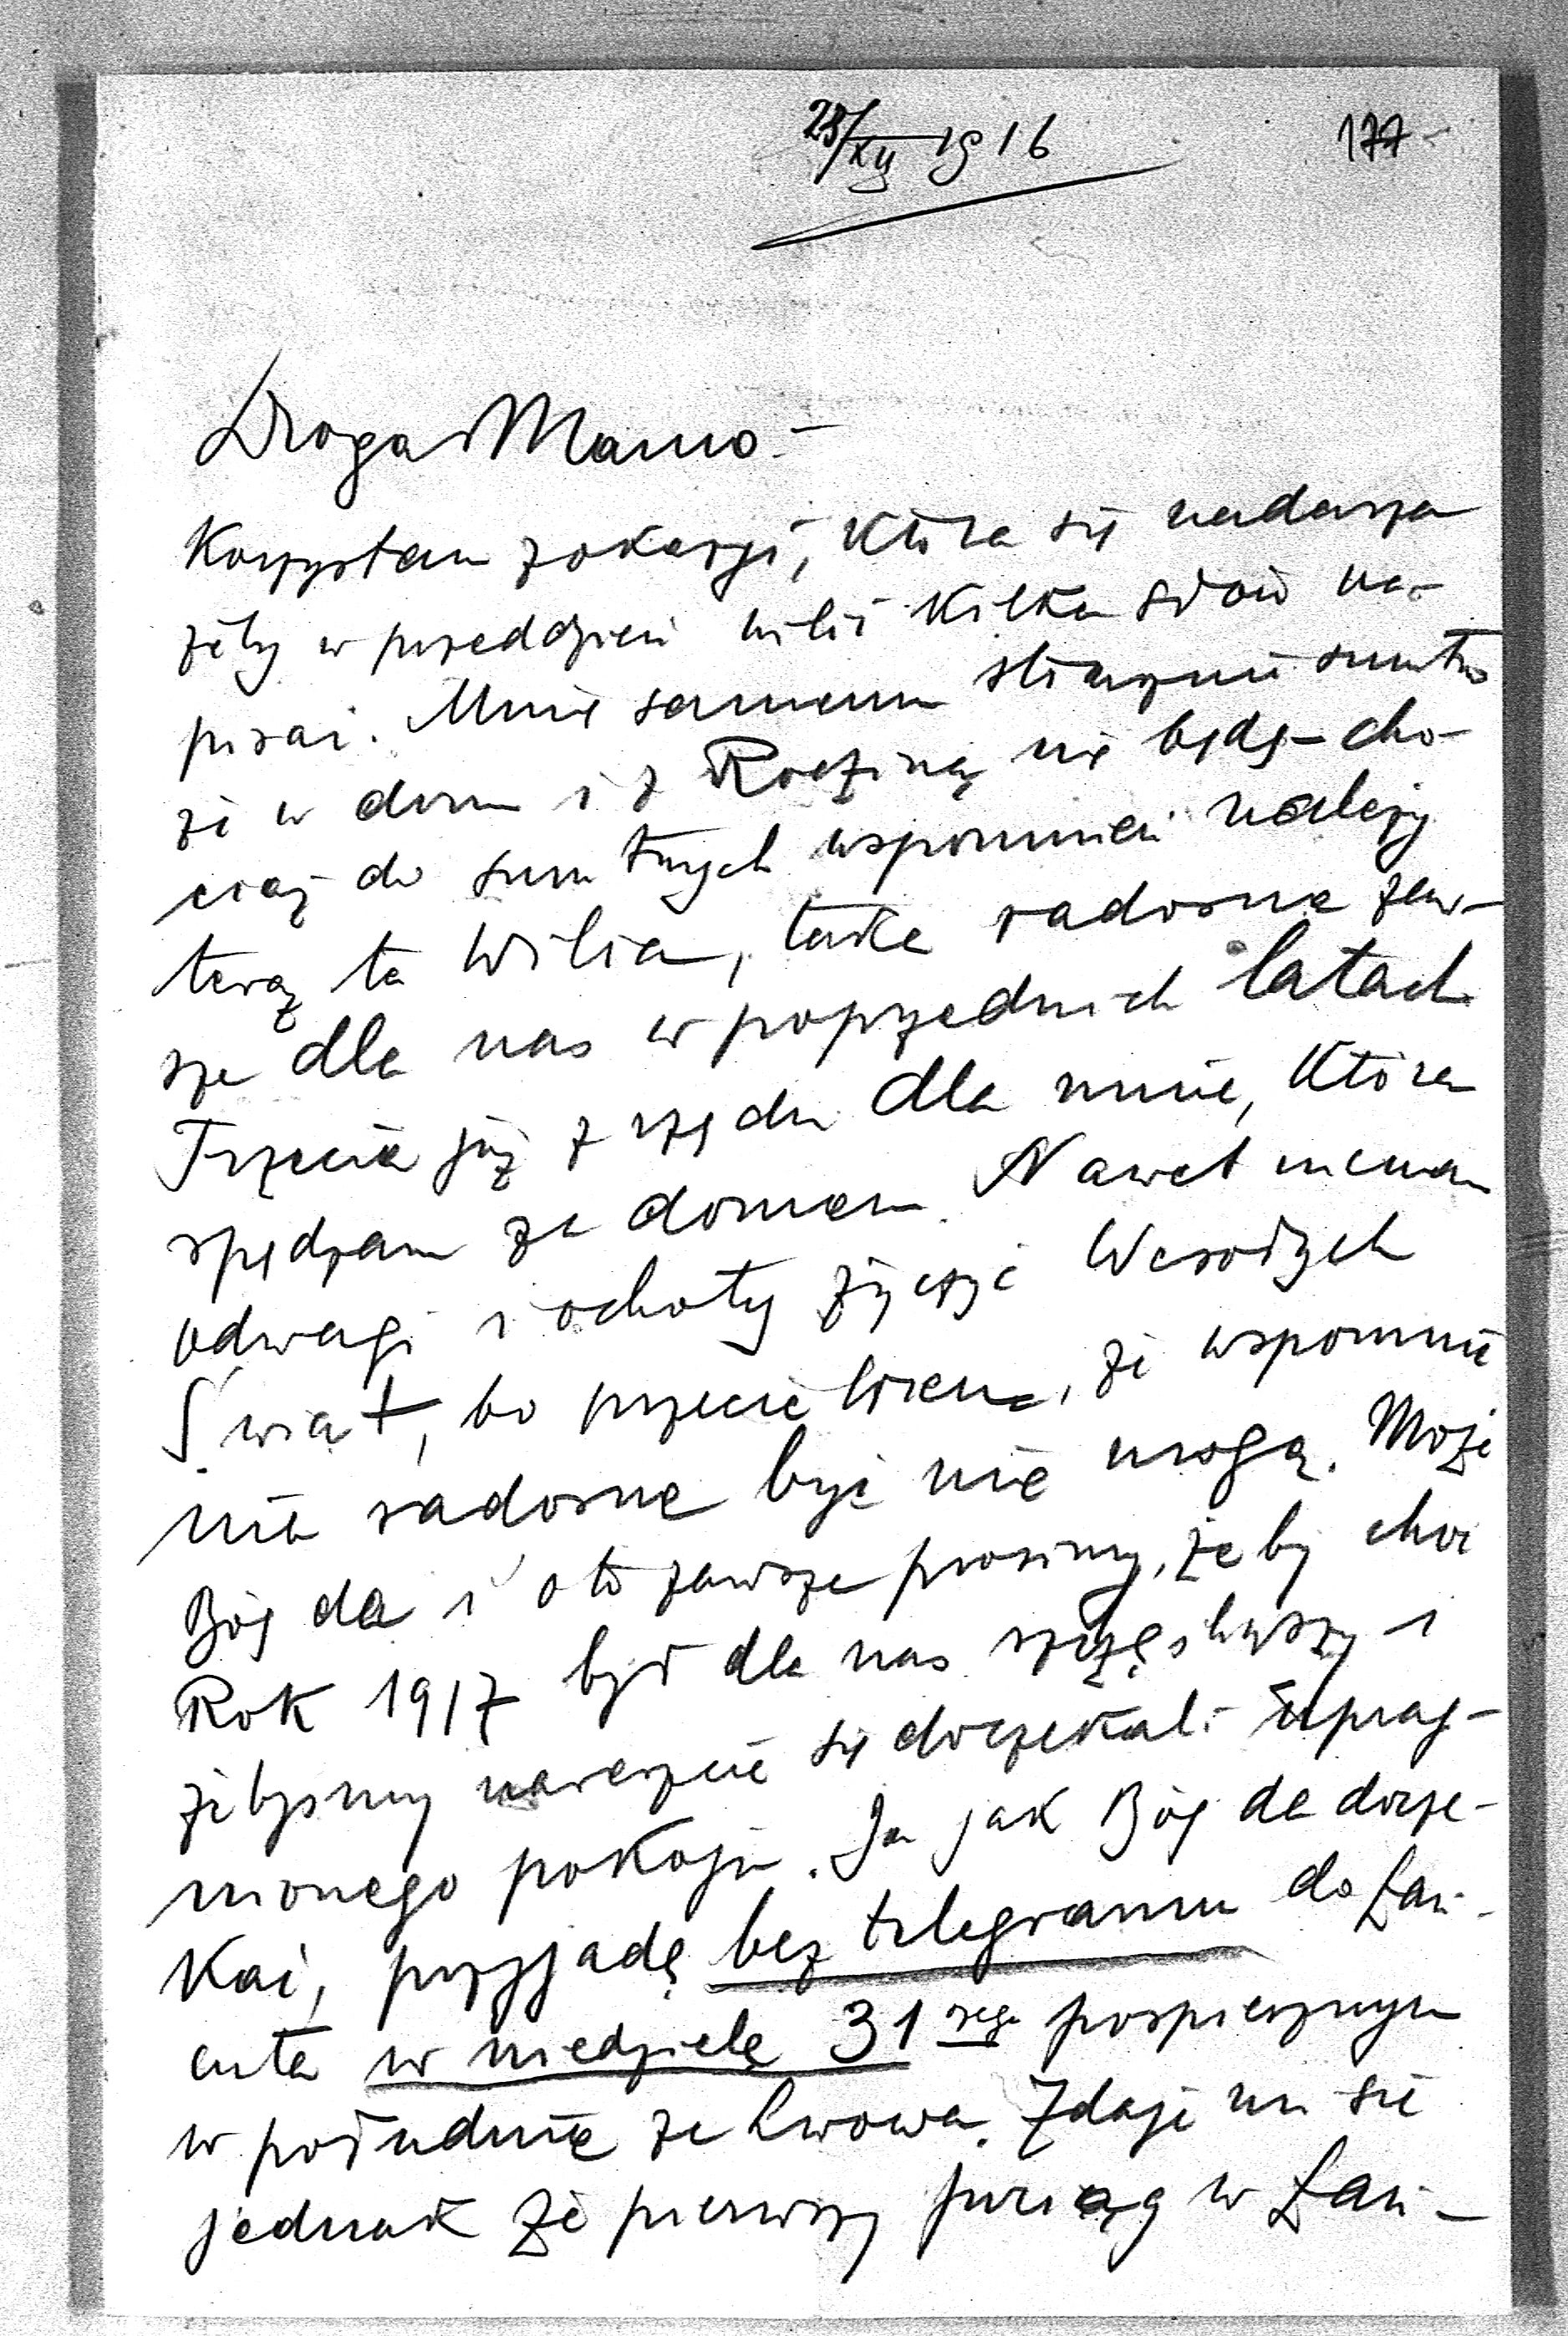 23/XII 1916 177-
Droga Mamo-
Korzystam z okazyi, która się nadarza
żeby w przeddzień wilii kilka słów na-
pisać. Mnie samemu strasznie smutno
że w domu i z Rodziną nie będę - cho-
ciaż do smutnych wspomnień należy
teraz ta Wilia, taka radosna zaw-
sze dla nas w poprzednich latach
Trzecia już z rzędu dla mnie, która
spędzam za domem. Nawet niemam
odwagi i ochoty życzyć Wesołych
Świąt, bo przecie wiem, że wspomnie
nia radosne być nie mogą. Może
Bóg da i o to zawsze prosimy, żeby choć
Rok 1917 był dla nas szczęśliwszy i
żebyśmy nareszcie się doczekali uprag-
nionego pokoju. Ja jak Bóg da docze-
kać, przyjadę bez telegramu do Łań-
cuta w niedzielę 31szego pospiesznym
w południe ze Lwowa. Zdaje mi się
jednak że pierwszy pociąg w Łań-